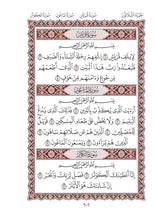 سُورَةُ قُرَيْشٍ
بِسْمِ اللَّهِ الرَّحْمَٰنِ الرَّحِيمِ
لِإِيلَٰفِ قُرَيْشٍ ١ إِۦلَٰفِهِمْ رِحْلَةَ الشِّتَآءِ وَالصَّيْفِ ٢
فَلْيَعْبُدُوا۟ رَبَّ هَٰذَا الْبَيْتِ ٣ الَّذِىٓ أَطْعَمَهُم
مِّن جُوعٍ وَءَامَنَهُم مِّنْ خَوْفٍۭ ٤
سُورَةُ الْمَاعُونِ
بِسْمِ اللَّهِ الرَّحْمَٰنِ الرَّحِيمِ
أَرَءَيْتَ الَّذِى يُكَذِّبُ بِالدِّينِ ١ فَذَٰلِكَ الَّذِى يَدُعُّ
الْيَتِيمَ ٢ وَلَا يَحُضُّ عَلَىٰ طَعَامِ الْمِسْكِينِ ٣ فَوَيْلٌ
لِّلْمُصَلِّينَ ٤ الَّذِينَ هُمْ عَن صَلَاتِهِمْ سَاهُونَ ٥
الَّذِينَ هُمْ يُرَآءُونَ ٦ وَيَمْنَعُونَ الْمَاعُونَ ٧
سُورَةُ الْكَوْثَرِ
بِسْمِ اللَّهِ الرَّحْمَٰنِ الرَّحِيمِ
إِنَّآ أَعْطَيْنَٰكَ الْكَوْثَرَ ١ فَصَلِّ لِرَبِّكَ وَانْحَرْ ٢
إِنَّ شَانِئَكَ هُوَ الْأَبْتَرُ ٣
٦٠٢